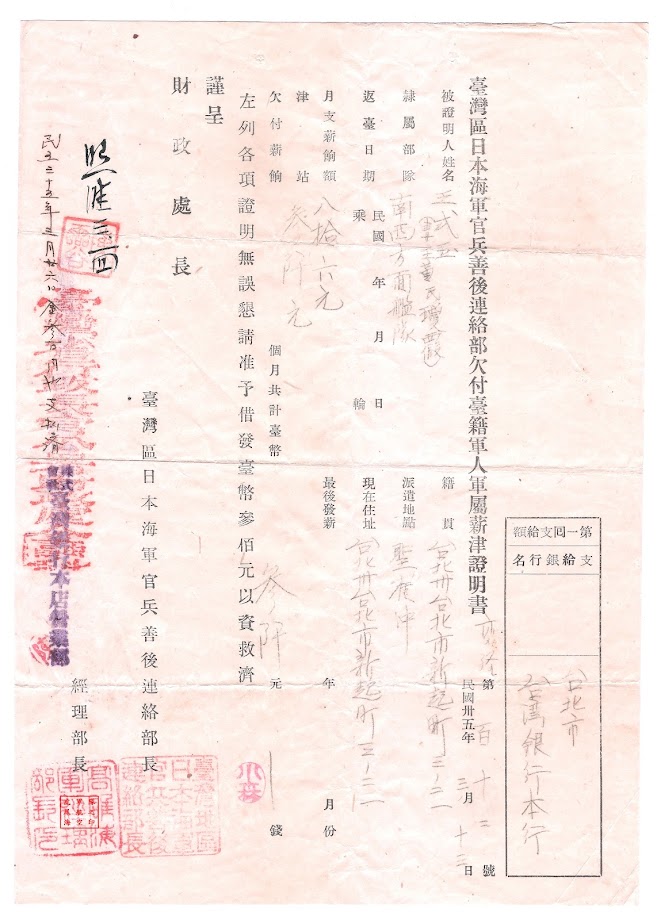 臺灣區日本海軍官兵善後連絡部欠付臺籍軍人軍屬薪津證明書
第 百十二 號
民國卅五年 三月 十三日
第一回支給額
支給銀行名
台北市
台灣銀行本行
被證明人姓名 王式玉
籍貫 台北州台北市新起町三ノ三一
隷屬部隊 南西方面艦隊
派遣地點
返臺日期 民國 年 月 日
乘 輪
現在住址 台北州台北市新起町三ノ三一
月支薪餉額 八拾六元
最後發薪 年 月份
津 站 叁阡元
欠付薪餉 個月共計臺幣 叁阡 元 錢
左列各項證明無誤懇請准予借發臺幣參佰元以資救濟
謹呈
財政處長
臺灣區日本海軍官兵善後連絡部長
經理部長
臺灣地區日本海軍官兵善後連絡部長
民國三十五年三月廿六日
株式會社臺灣銀行本店